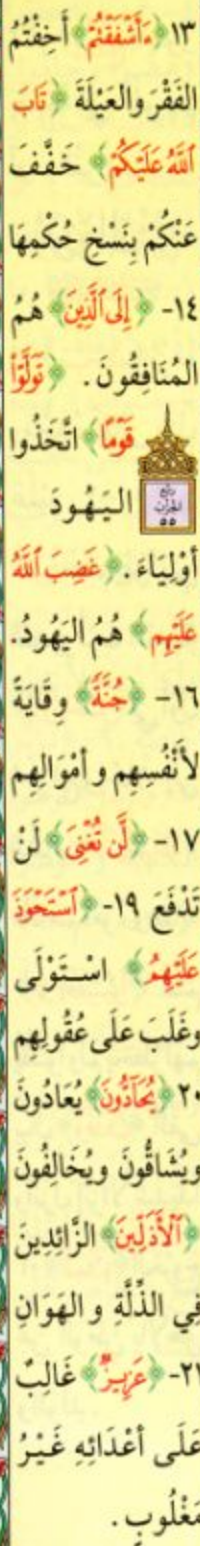 ١٣ ﴿ءَأَشْفَقْتُمْ﴾ أَخِفْتُمُ
الفَقْرَ والعَيْلَةَ ﴿تَابَ
ٱللَّهُ عَلَيْكُمْ﴾ خَفَّفَ
عَنْكُمْ بِنَسْخِ حُكْمِهَا
١٤- ﴿إِلَى ٱلَّذِينَ﴾ هُمُ
المُنَافِقُونَ. ﴿تَوَلَّوْا۟
قَوْمًا﴾ اتَّخَذُوا
اليَهُودَ
أوْلِيَاءَ. ﴿غَضِبَ ٱللَّهُ
عَلَيْهِم﴾ هُمُ اليَهُودُ.
١٦- ﴿جُنَّةً﴾ وِقَايَةً
لأَنْفُسِهِم و أمْوَالِهِم
١٧- ﴿لَّن تُغْنِىَ﴾ لَنْ
تَدْفَعَ ١٩- ﴿ٱسْتَحْوَذَ
عَلَيْهِمُ﴾ اسْتَوْلَى
وغَلَبَ عَلَى عُقُولِهِم
٢٠ ﴿يُحَآدُّونَ﴾ يُعَادُونَ
ويُشَاقُّونَ ويُخَالِفُونَ
﴿ٱلْأَذَلِّينَ﴾ الزَّائِدِينَ
فِي الذِّلَّةِ و الهَوَانِ
٢١- ﴿عَزِيزٌ﴾ غَالِبٌ
عَلَى أعْدَائِهِ غَيْرُ
مَغْلُوبٍ.